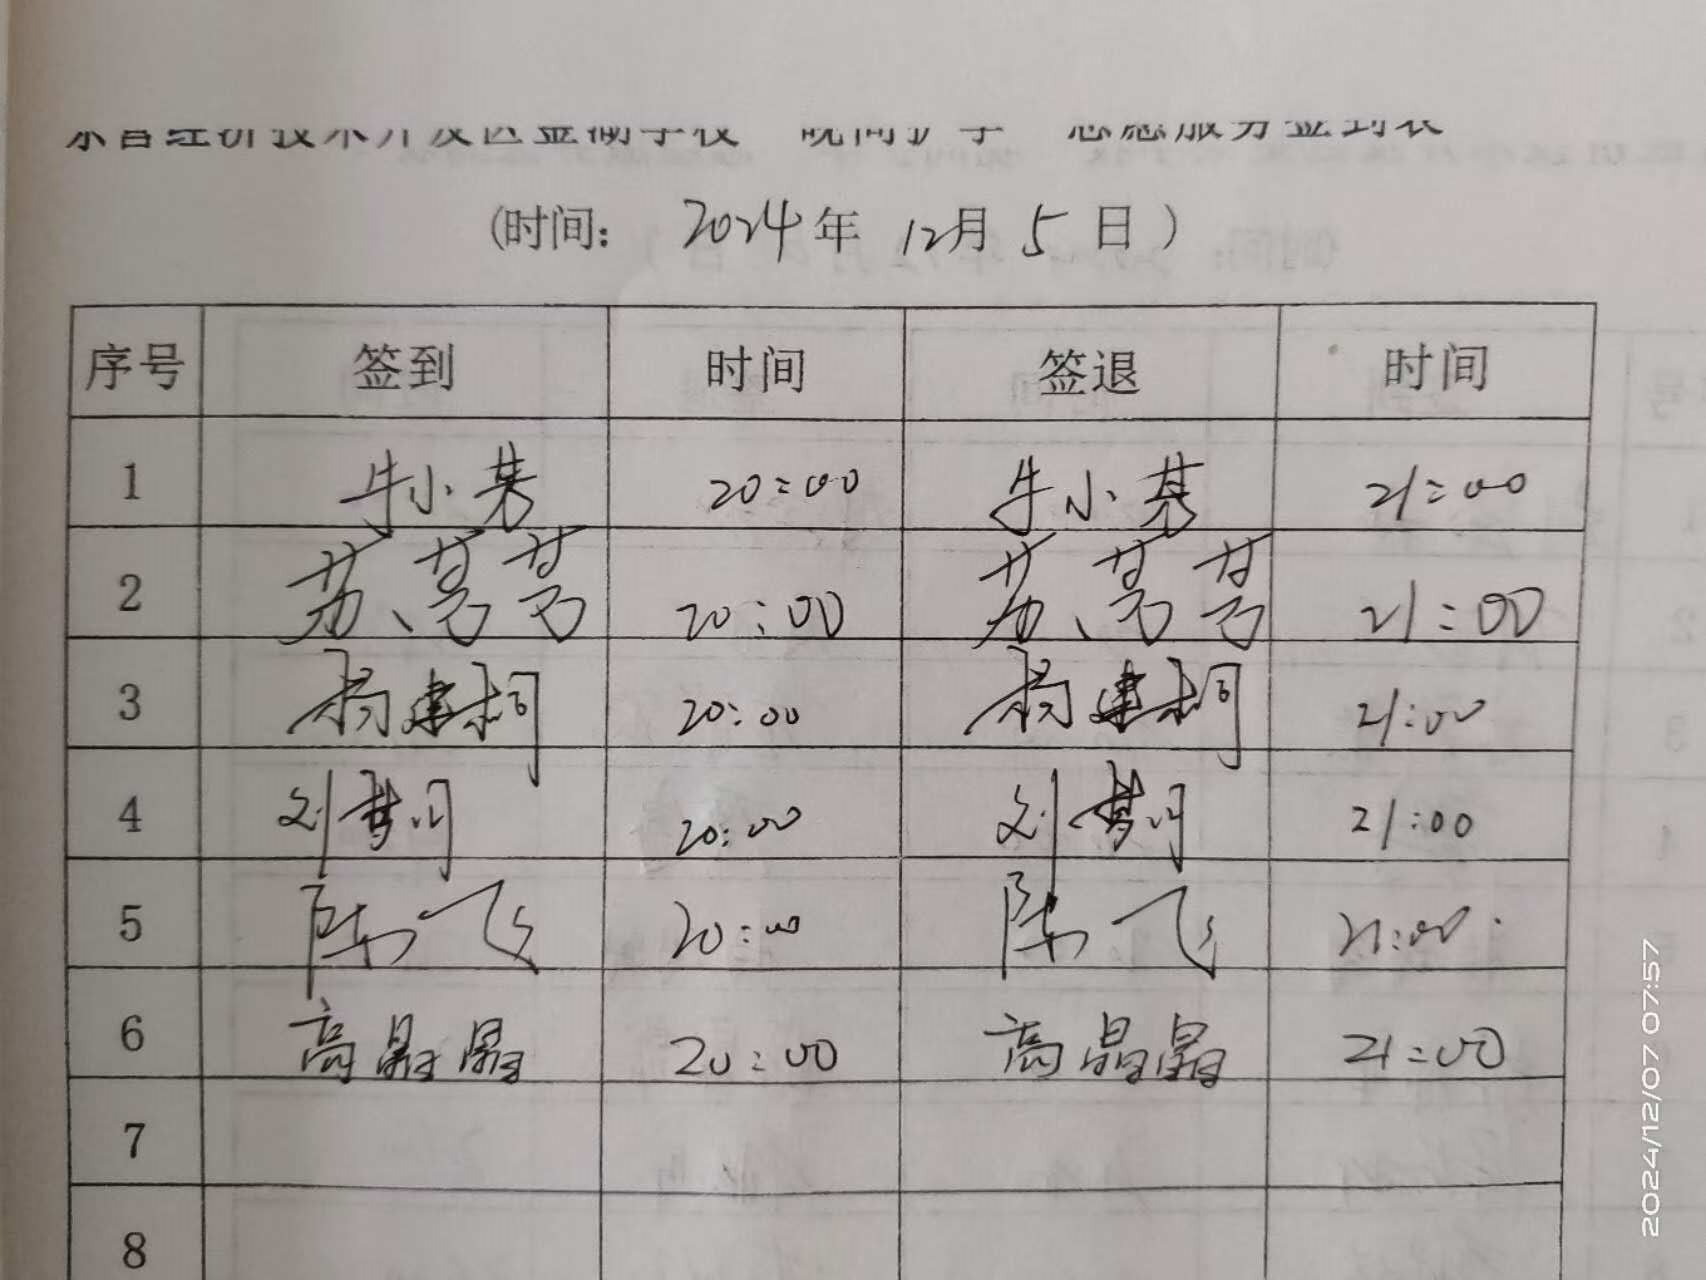 东营经济技术开发区金湖学校 晚间护学 志愿服务签到表
(时间： 2024年 12月 5 日 )
序号 签到 时间 签退 时间
1 牛小某 20:00 牛小某 21:00
2 苏萼萼 20:00 苏萼萼 21:00
3 杨建桐 20:00 杨建桐 21:00
4 刘梦月 20:00 刘梦月 21:00
5 陈飞 20:00 陈飞 21:00
6 高晶晶 20:00 高晶晶 21:00
7
8
2024/12/07 07:57